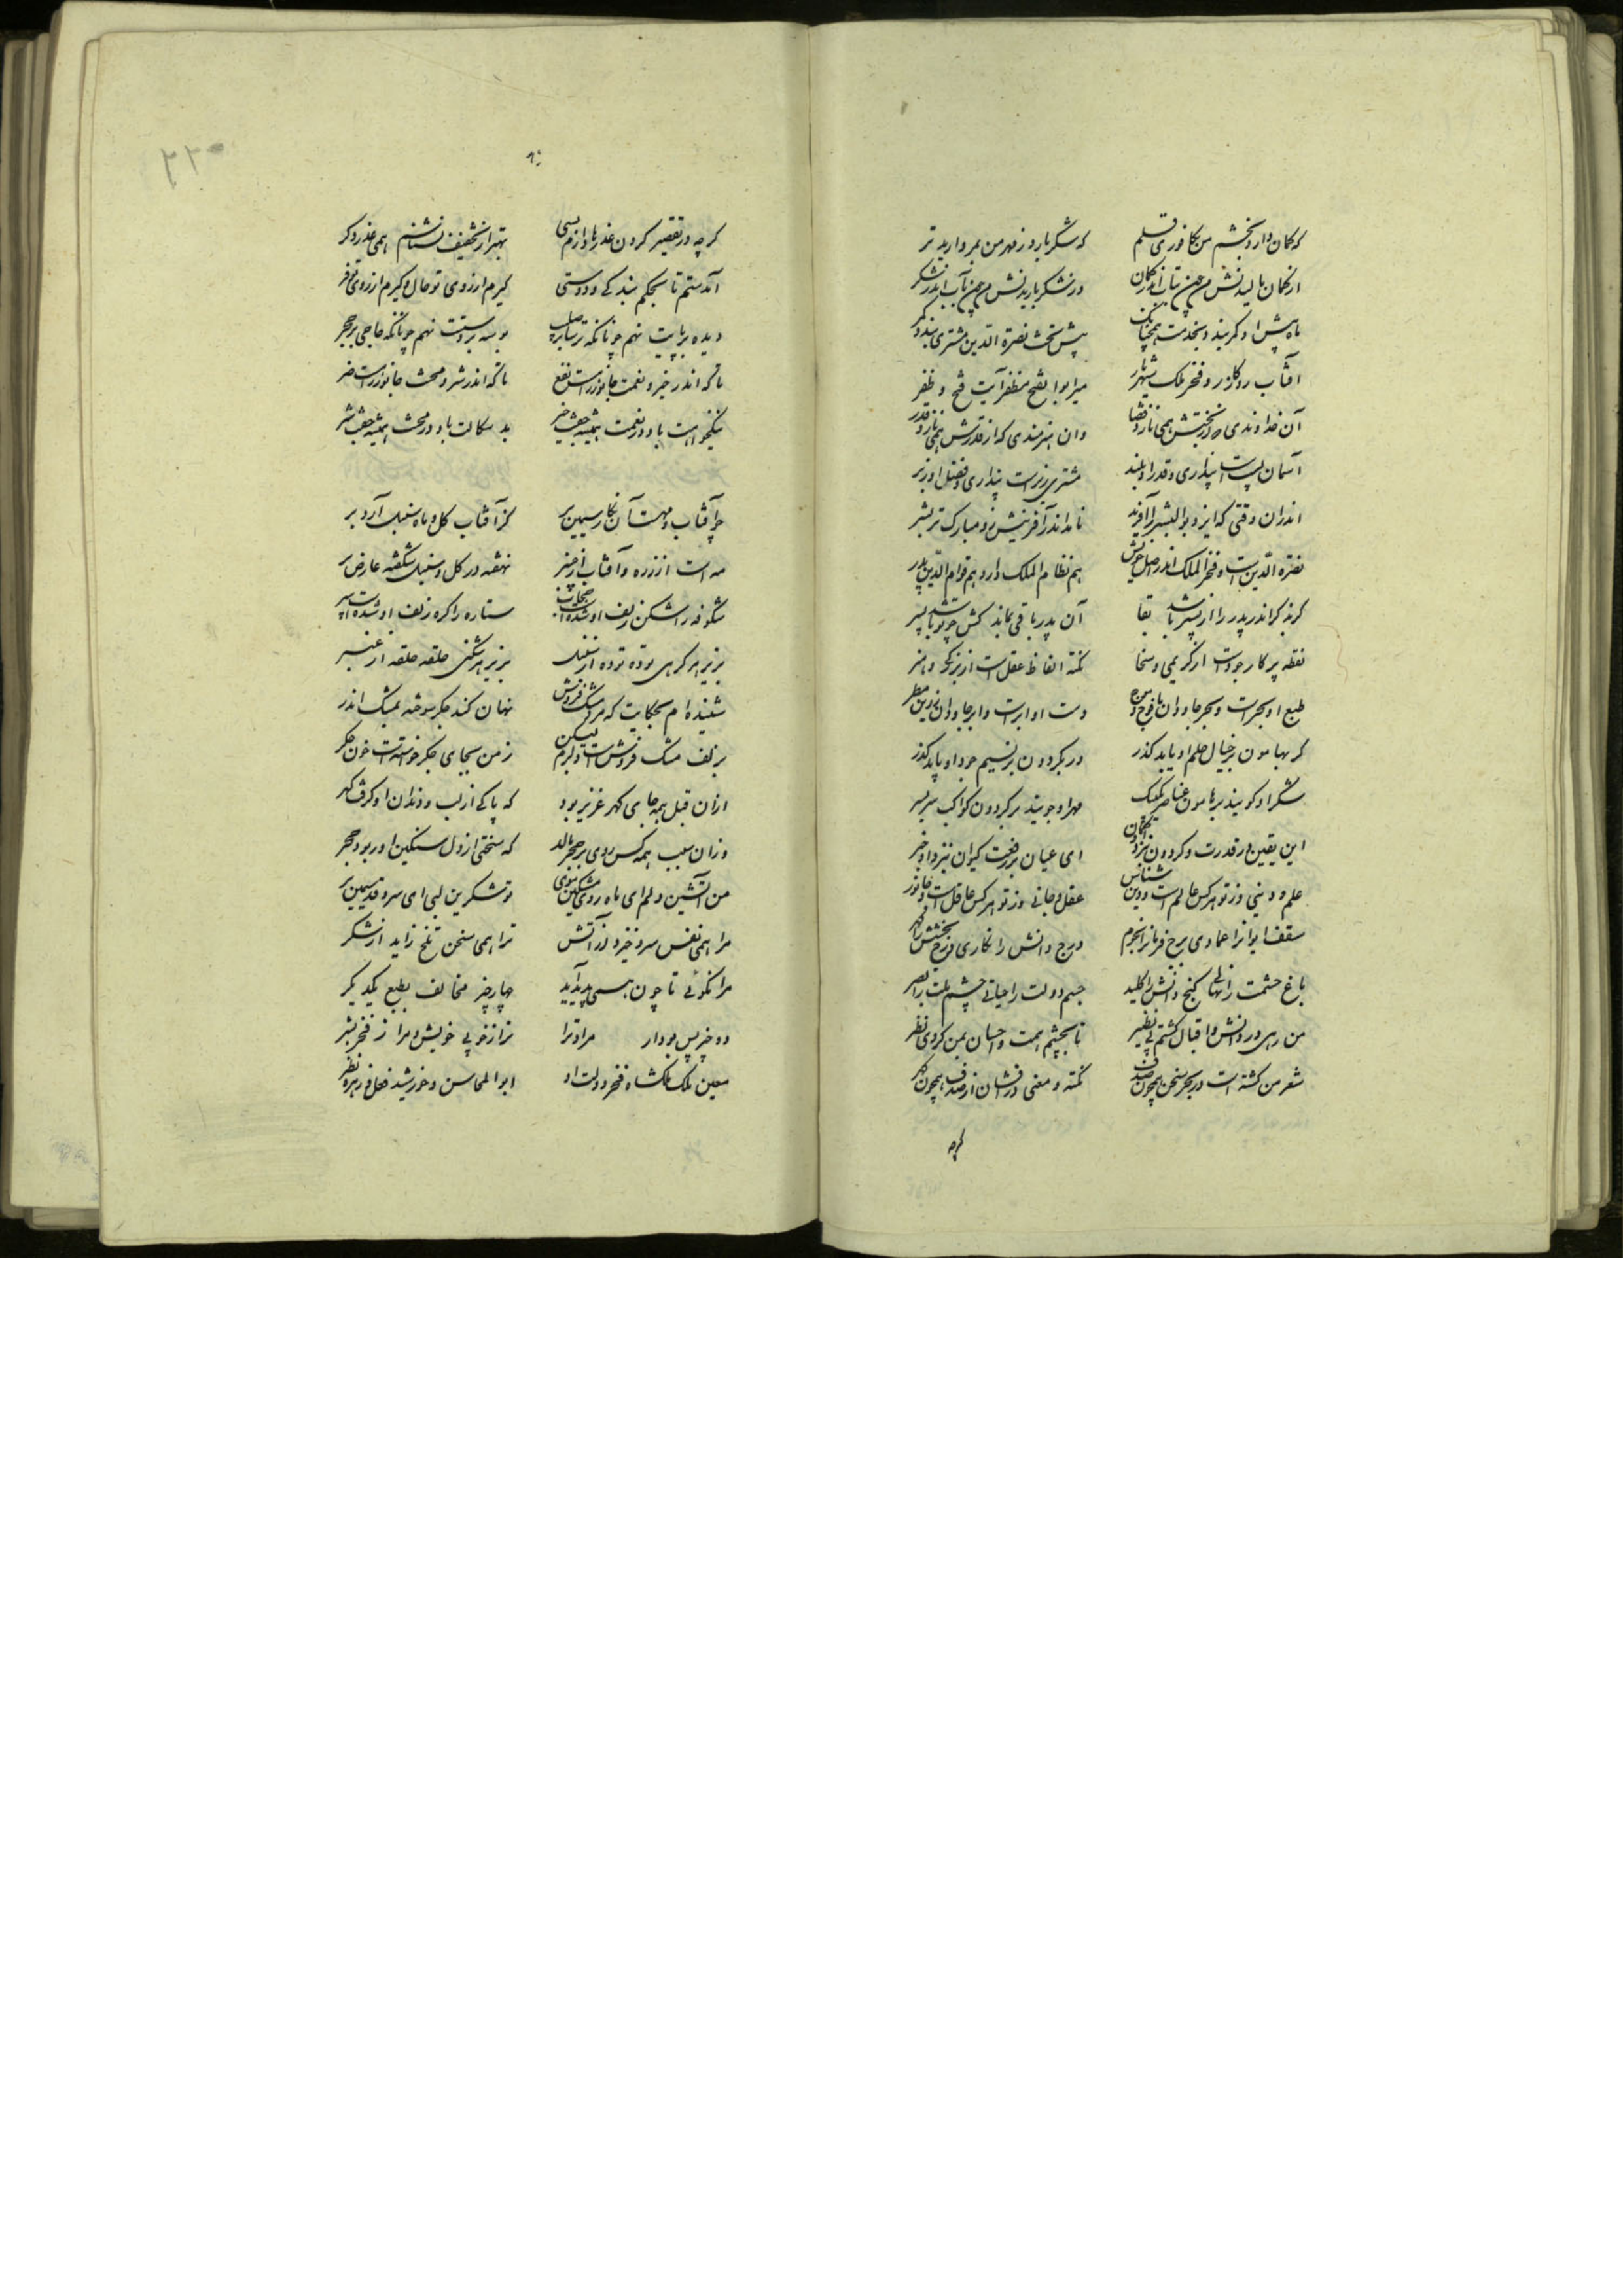 که کمان دارد بخشم من بکافوری قلم که شکر بارد ز مهر من بمروارید تر
از کمان بالیدنش من چین تاب اندر کمان وز شکر باریدنش من چون آب اندر شکر
ماه پیش او کمر بندد بخدمت همچنانک پیش تخت نصرة الدین مشتری بندد کمر
آفتاب روزگار و فخر ملک شهریار میر ابوالفتح مظفر آیت فتح و ظفر
آن خداوندی که از بختش همی نازد قضا وان هنرمندی که از قدرش همی نازد قدر
آسمان پست است پنداری و قدر او بلند مشتری زیر است پنداری و فضل او زبر
اندران وقتی که ایزد بوالبشر را آفرید نامد اندر آفرینش زو مبارک تر بشر
نصرة الدین است و فخر الملک اندر اصل خویش هم نظام الملک دارد هم قوام الدین پدر
گرند گر اندر پدر را از پسر باشد بقا آن پدر باقی بماند کش چو تو باشد پسر
نقطه پرگار جود است از کریمی و سخا نکته الفاظ عقل است از بزرگی و هنر
طبع او بحر است و بحر جاودان با موج در دست او ابر است و ابر جاودان زرین مطر
گر بهامون بر خیال حلم او یابد گذر ور بگردون بر نسیم جود او یابد گذر
شکر او گویند بر هامون عناصر یک بیک مهر او جویند بر گردون کواکب سر بسر
این یقین در قدرت گردون نزد او گمان ای عیان بر رفعت کیوان نزد او خبر
علم و دینی وز تو هر کس عالم است و دین شناس عقل و جانی وز تو هر کس عاقل است و جانور
سقف ایوانرا عمادی برج فرمانرا نجوم درج دانش را نگاری درج بخشش را گهر
باغ حشمت را نهالی گنج دانش را کلید جسم دولت را حیاتی چشم ملت را بصر
من رهی در دانش و اقبال گشتم بی نظیر تا بچشم همت و احسان بمن کردی نظر
شعر من گشته است در بحر سخن همچون صدف نکته و معنی درفشان از صدف همچون گهر
گرچه
گرچه در تقصیر کردن عذرها دارم بسی بهتر از تخفیف نشناسم همی عذر دگر
آمدستم تا بحکم بندگی و دوستی گیرم از روی تو حال و گیرم از روی تو فر
دیده بر پایت نهم چونانکه ترسا بر صلیب بوسه بر دستت نهم چونانکه حاجی بر حجر
تا که اندر خیر و نعمت جانور راست نفع تا که اندر شر و محنت جانور راست ضر
نیکخواهت باد در نعمت همیشه جفت خیر بد سگالت باد در محنت همیشه جفت شر
چو آفتاب و مهست آن نگار سیمین بر گر آفتاب گل و ماه سنبل آرد بر
مه است از زره و آفتاب از عنبر نهفته در گل و سنبل شکفته عارض بر
شکوفه را شکن زلف او شده است حجاب ستاره را گره زلف او شده است سپر
بزیر هر گرهی توده توده از سنبل بزیر هر شکنی حلقه حلقه از عنبر
شنیده ام بحکایت که مرد مشک فروش نهان کند جگر سوخته بمشک اندر
بزلف مشک فروش است دلبرم لیکن ز من بجای جگر خواستست خون جگر
از آن قبل همه جای گهر عزیز بود که پاکی از لب و دندان او گرفت گهر
وزان سبب همه کس روی بر حجر مالد که سختی از دل سنگین او ربود حجر
من آتشین دلم ای ماه روی مشکین موی تو شکرین لبی ای سرو قد سیمین بر
مرا همی نفس سرد خیزد از آتش ترا همی سخن تلخ زاید از شکر
مرا نگوئی تا چون همی پدید آید چهار چیز مخالف بطبع یکدیگر
دو چیز بس بود ار مرا و ترا ترا ز خوبی خویش و مرا ز فخر بشر
معین ملک ملکشاه فخر دولت او ابوالمحاسن و خورشید فعل و زهره نظر